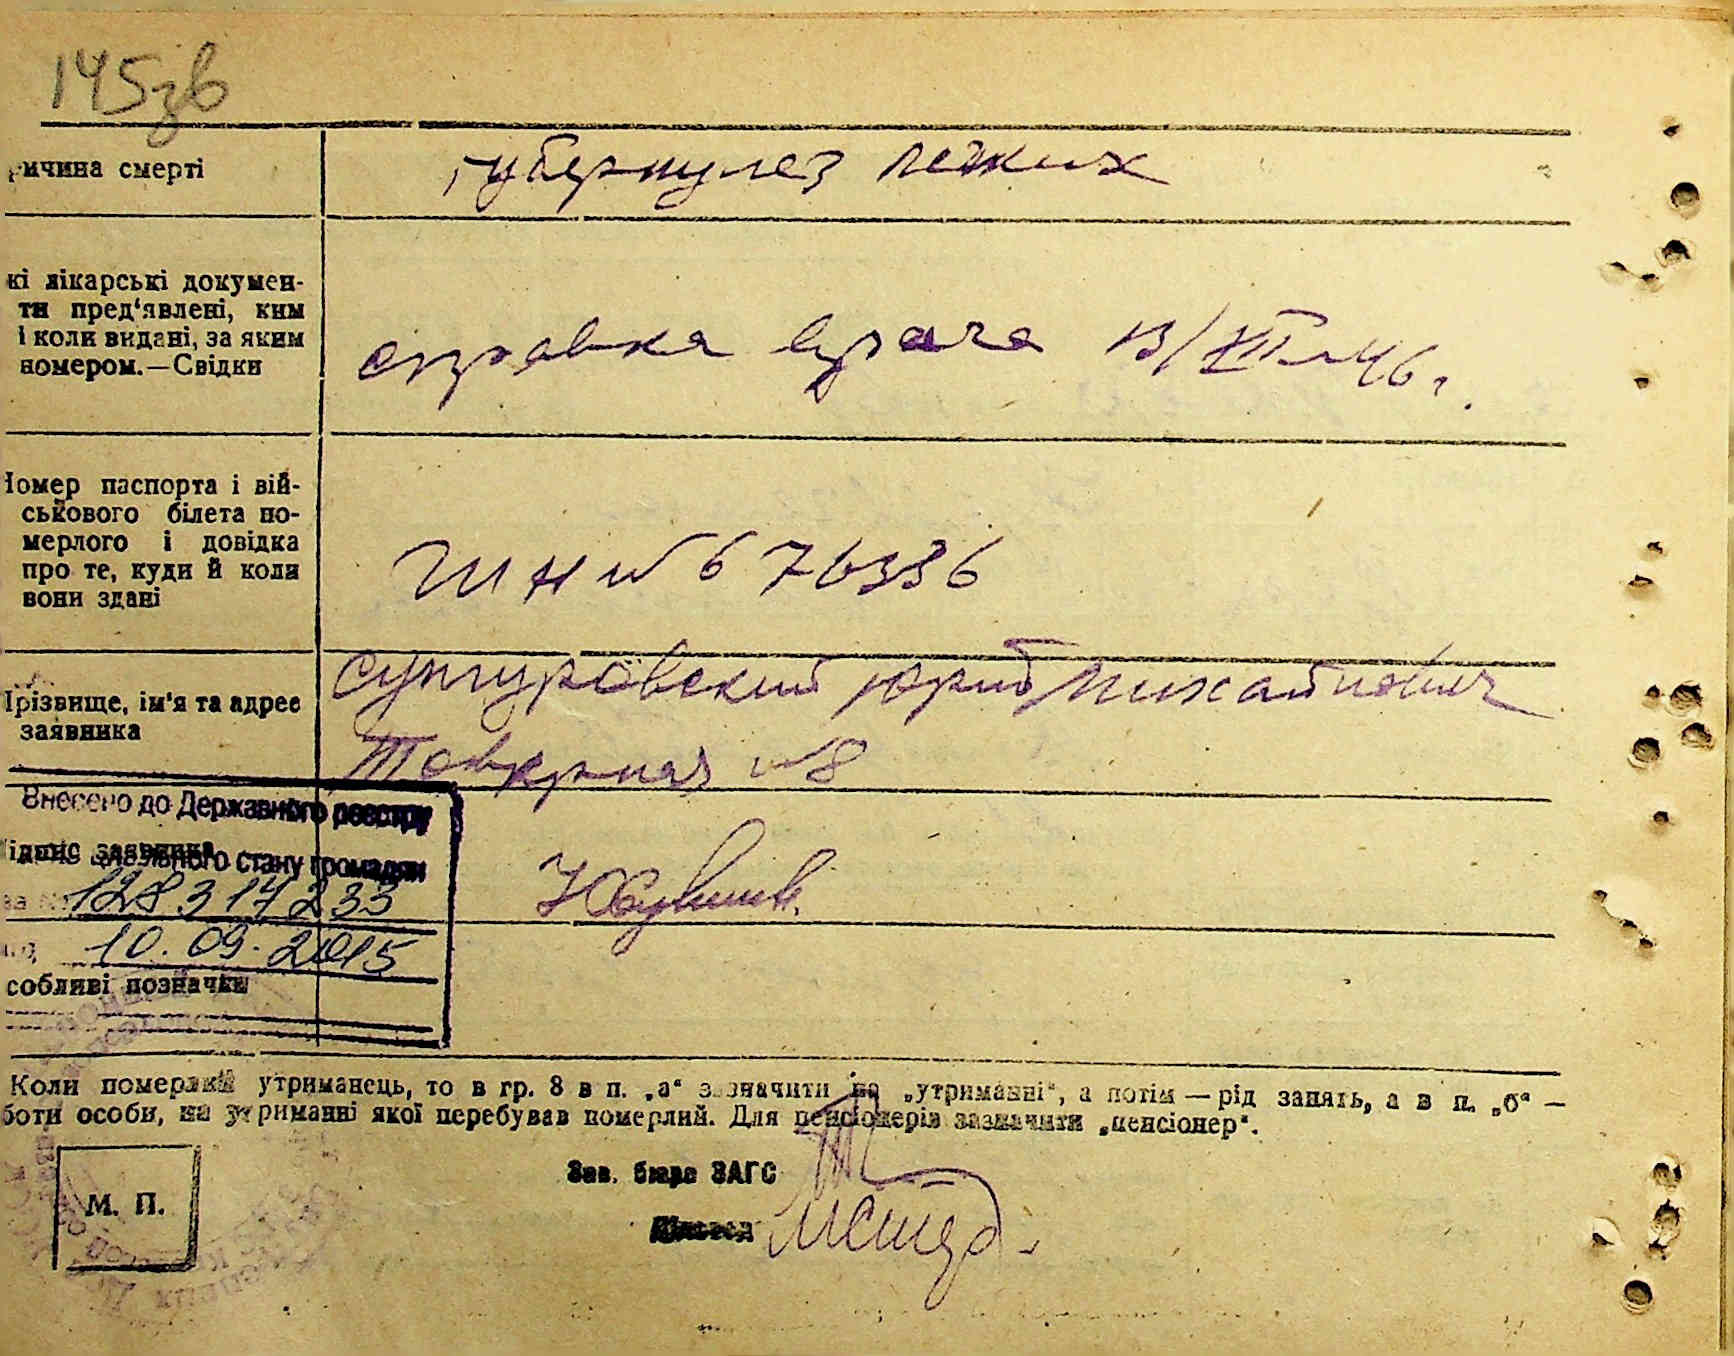 145зв
ричина смерті
туберкулез легких
кі лікарські докумен-
ти пред'явлені, ким
і коли видані, за яким
номером.—Свідки
справка врача 13/XII-46г.
Номер паспорта і вій-
ськового білета по-
мерлого і довідка
про те, куди й коли
вони здані
ШН № 676336
Прізвище, ім'я та адрес
заявника
Сунгуровский Юрий Михайлович
№8
Внесено до Державного реєстру
ідпис заявника
стану громадян
за № 128317233
10.09.2015
собливі позначки
Коли померлий утриманець, то в гр. 8 в п. „а“ зазначити на „утриманні“, а потім — рід занять, а в п. „б“ —
боти особи, на утриманні якої перебував померлий. Для пенсіонерів зазначити „пенсіонер“.
Зав. бюро ЗАГС
М. П.